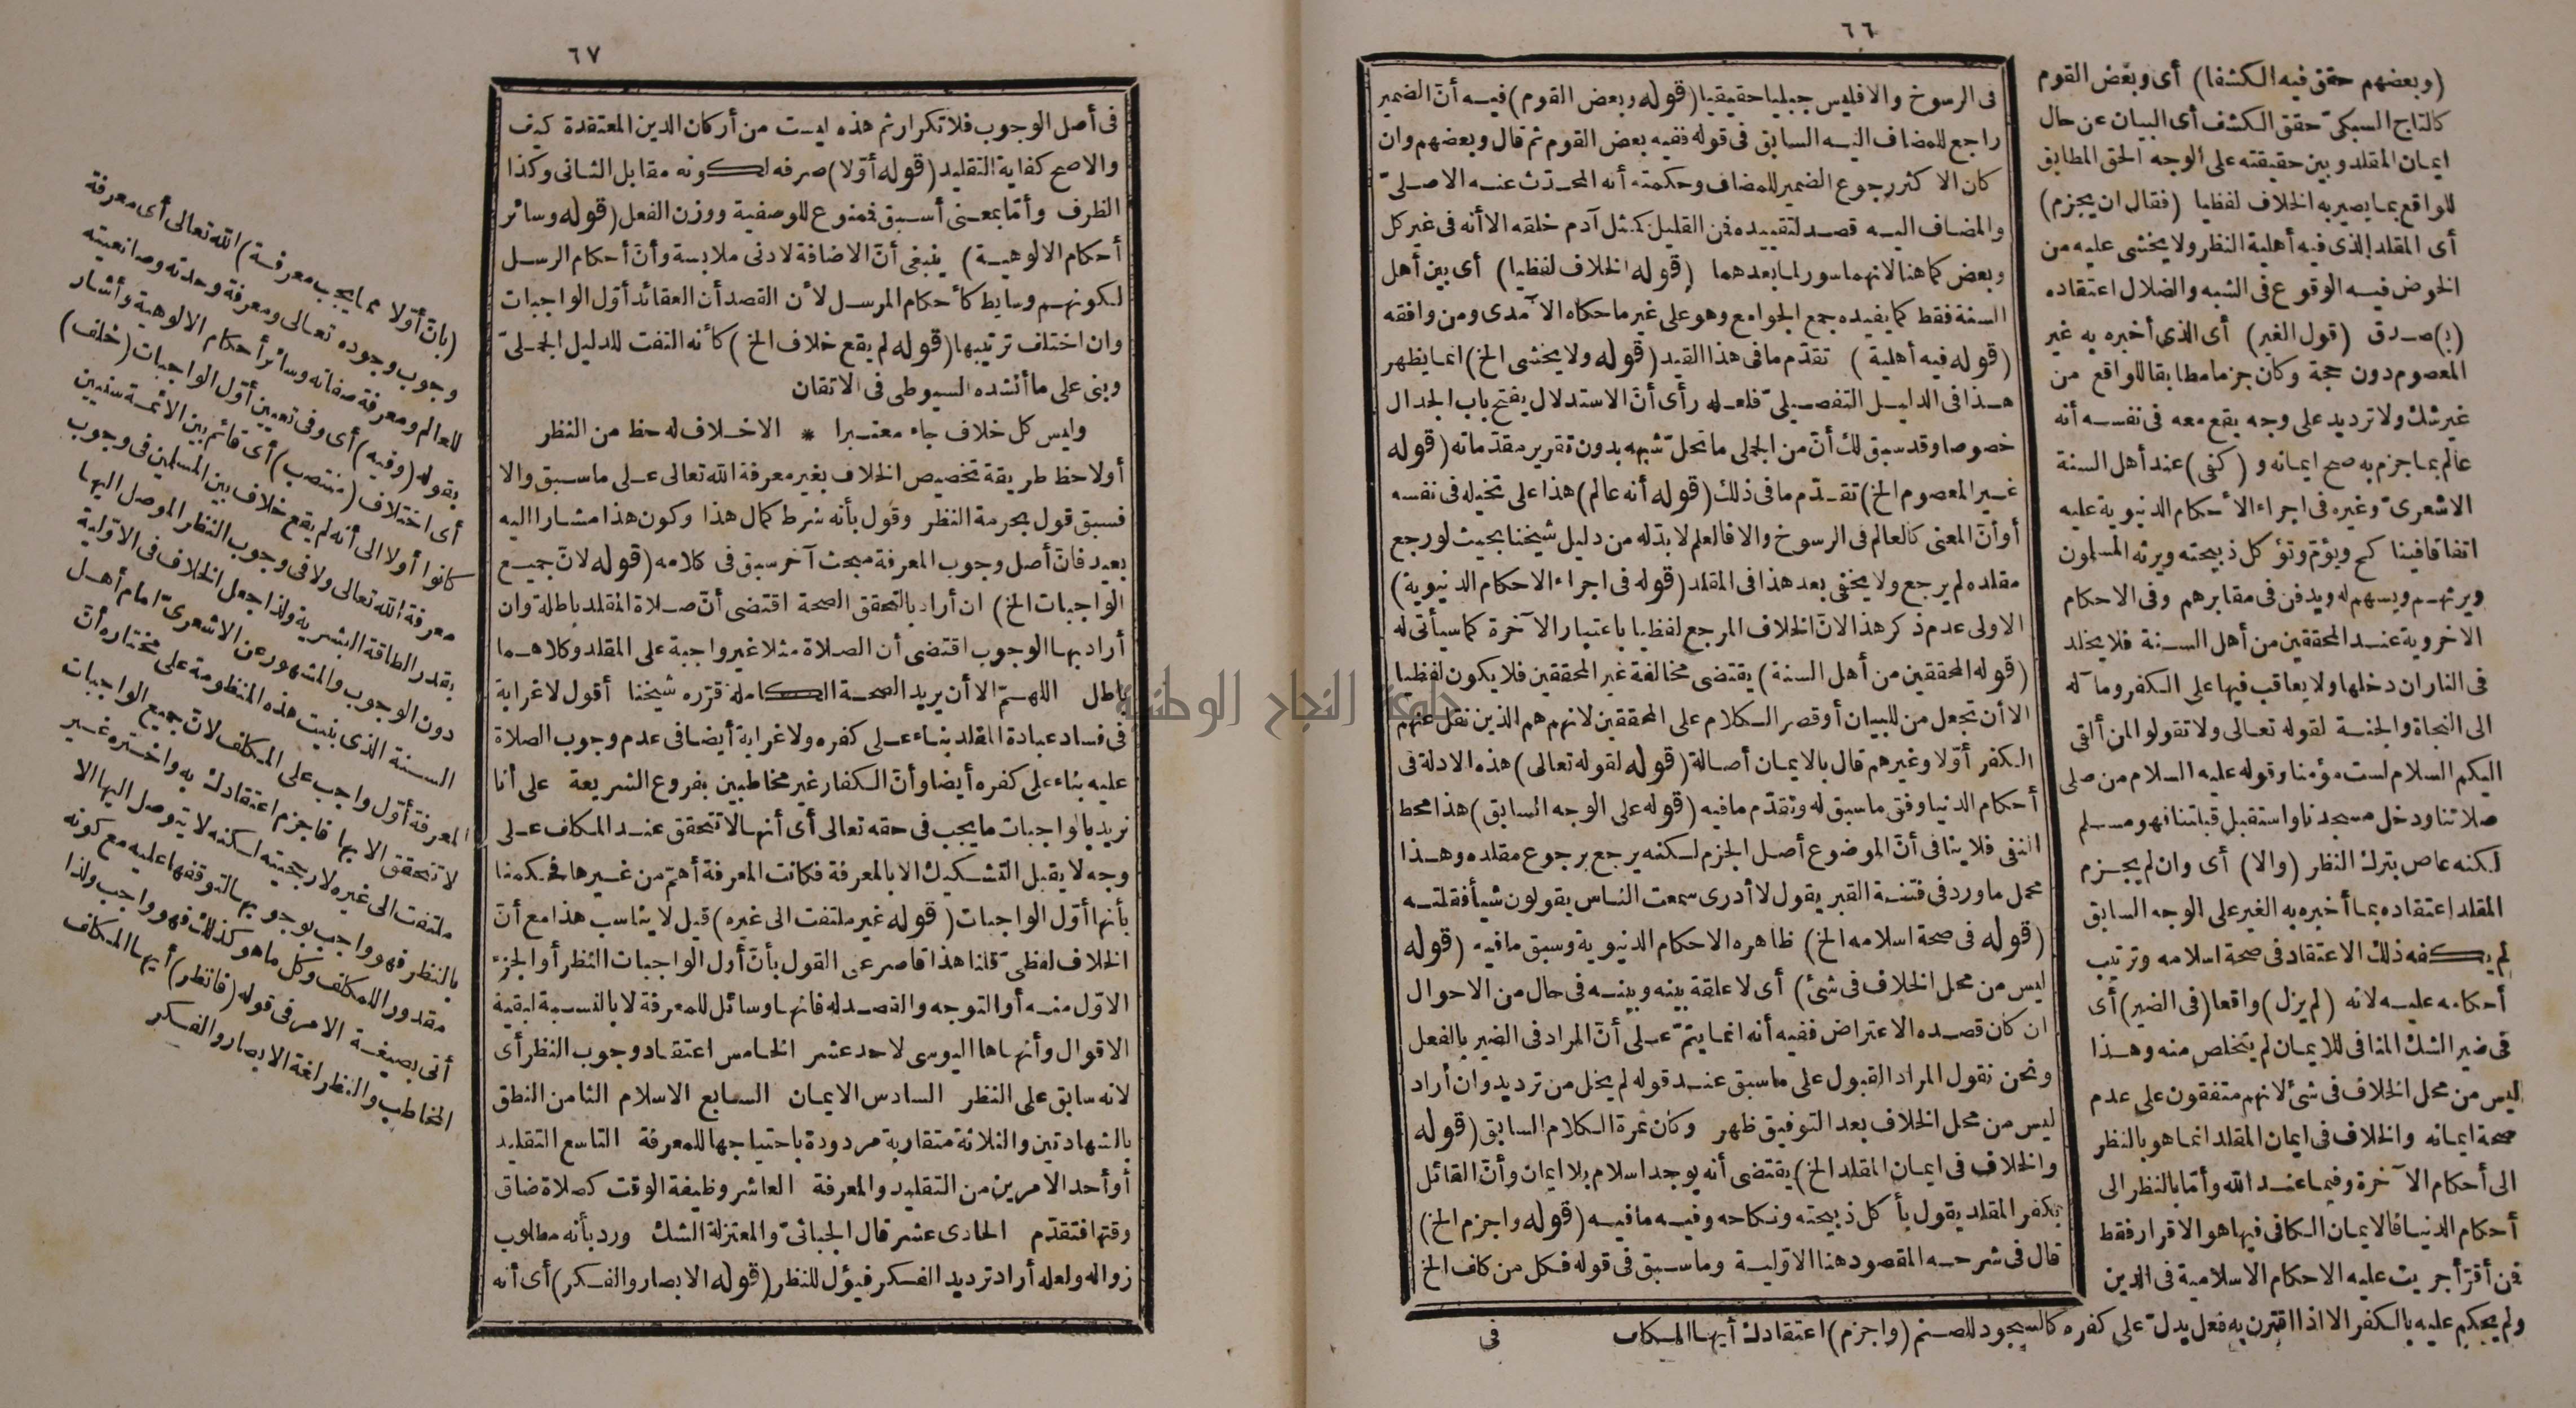 ٦٦
(وبعضهم حقق فيه الكشفا) أى وبعض القوم
كالتاج السبكىّ حقق الكشف أى البيان عن حال
ايمان المقلد وبين حقيقته على الوجه الحق المطابق
للواقع بما يصير به الخلاف لفظيا (فقال ان يجزم)
أى المقلد الذى فيه أهلية النظر ولا يخشى عليه من
الخوض فيه الوقوع فى الشبه والضلال اعتقاده
(ب) صدق (قول الغير) أى الذى أخبره به غير
المعصوم دون حجة وكان جزما مطابقا للواقع من
غير شك ولا ترديد على وجه يقع معه فى نفسه أنه
عالم بما جزم به صح ايمانه و (كفى) عند أهل السنة
الاشعرىّ وغيره فى اجراء الأحكام الدنيوية عليه
اتفاقا فيناكح ويؤم وتؤكل ذبيحته ويرثه المسلمون
ويرثهم ويسهم له ويدفن فى مقابرهم وفى الاحكام
الاخروية عند المحققين من أهل السنة فلا يخلد
فى النار ان دخلها ولا يعاقب فيها على الكفر ومآله
الى النجاة والجنة لقوله تعالى ولا تقولوا لمن ألقى
اليكم السلام لست مؤمنا وقوله عليه السلام من صلى
صلاتنا ودخل مسجدنا واستقبل قبلتنا فهو مسلم
لكنه عاص بترك النظر (والا) أى وان لم يجزم
المقلد اعتقاده بما أخبره به الغير على الوجه السابق
لم يكفه ذلك الاعتقاد فى صحة اسلامه وترتيب
أحكامه عليه لانه (لم يزل) واقعا (فى الضير) أى
فى ضير الشك المنافى للايمان لم يتخلص منه وهذا
ليس من محل الخلاف فى شئ لانهم متفقون على عدم
صحة ايمانه والخلاف فى ايمان المقلد انما هو بالنظر
الى أحكام الآخرة وفيما عند الله وأمّا بالنظر الى
أحكام الدنيا فالايمان الكافى فيها هو الاقرار فقط
فمن أقرّ أجريت عليه الاحكام الاسلامية فى الدين
ولم يحكم عليه بالكفر الا اذا اقترن به فعل يدلّ على كفره كالسجود للصنم (واجزم) اعتقادك أيها المكلف
فى الرسوخ والا فليس جبليا حقيقيا (قوله وبعض القوم) فيه أنّ الضمير
راجع للمضاف اليه السابق فى قوله ففيه بعض القوم ثم قال وبعضهم وان
كان الاكثر رجوع الضمير للمضاف وحكمته أنه المحدّث عنه الاصلىّ
والمضاف اليه قصد لتقييده فمن القليل كمثل آدم خلقه الا أنه فى غير كل
وبعض كما هنا لانهما سور لما بعدهما (قوله الخلاف لفظيا) أى بين أهل
السنة فقط كما يفيده جمع الجوامع وهو على غير ما حكاه الآمدى ومن وافقه
(قوله فيه أهلية) تقدّم ما فى هذا القيد (قوله ولا يخشى الخ) انما يظهر
هذا فى الدليل التفصيلىّ فلعله رأى أنّ الاستدلال يفتح باب الجدال
خصوصا وقد سبق لك أنّ من الجملى ما تحلّ شبهه بدون تقرير مقدّماته (قوله
غير المعصوم الخ) تقدّم ما فى ذلك (قوله أنه عالم) هذا على تخيله فى نفسه
أو أنّ المعنى كالعالم فى الرسوخ والا فالعلم لا بدّله من دليل شيخنا بحيث لو رجع
مقلده لم يرجع ولا يخفى بعد هذا فى المقلد (قوله فى اجراء الاحكام الدنيوية)
الاولى عدم ذكر هذا لانّ الخلاف المرجع لفظيا باعتبار الآخرة كما سيأتى له
(قوله المحققين من أهل السنة) يقتضى مخالفة غير المحققين فلا يكون لفظيا
الا أن تجعل من للبيان أو قصر الكلام على المحققين لانهم هم الذين نقل عنهم
الكفر أوّلا وغيرهم قال بالايمان أصالة (قوله لقوله تعالى) هذه الادلة فى
أحكام الدنيا وفق ما سبق له وتقدّم ما فيه (قوله على الوجه السابق) هذا محط
النفى فلا ينافى أنّ الموضوع أصل الجزم لكنه يرجع برجوع مقلده وهذا
محمل ما ورد فى فتنة القبر يقول لا أدرى سمعت الناس يقولون شيأ فقلته
(قوله فى صحة اسلامه الخ) ظاهره الاحكام الدنيوية وسبق ما فيه (قوله
ليس من محل الخلاف فى شئ) أى لا علقة بينه وبينه فى حال من الاحوال
ان كان قصده الاعتراض ففيه أنه انما يتمّ على أنّ المراد فى الضير بالفعل
ونحن نقول المراد القبول على ما سبق عند قوله لم يخل من ترديد وان أراد
ليس من محل الخلاف بعد التوفيق ظهر وكان ثمرة الكلام السابق (قوله
والخلاف فى ايمان المقلد الخ) يقتضى أنه يوجد اسلام بلا ايمان وأنّ القائل
بكفر المقلد يقول بأكل ذبيحته ونكاحه وفيه ما فيه (قوله واجزم الخ)
قال فى شرحه المقصود هنا الاوّلية وما سبق فى قوله فكل من كلف الخ
فى
٦٧
فى أصل الوجوب فلا تكرار ثم هذه ليست من أركان الدين المعتقدة كيف
والاصح كفاية التقليد (قوله أوّلا) صرفه لكونه مقابل الثانى وكذا
الظرف وأمّا بمعنى أسبق فممنوع للوصفية ووزن الفعل (قوله وسائر
أحكام الالوهية) ينبغى أنّ الاضافة لادنى ملابسة وأنّ أحكام الرسل
لكونهم وسايط كأحكام المرسل لأن القصد أن العقائد أوّل الواجبات
وان اختلف ترتيبها (قوله لم يقع خلاف الخ) كأنه التفت للدليل الجملىّ
وبنى على ما أنشده السيوطى فى الاتقان
وليس كل خلاف جاء معتبرا * الا خلاف له حظ من النظر
أولاحظ طريقة تخصيص الخلاف بغير معرفة الله تعالى على ما سبق والا
فسبق قول بحرمة النظر وقول بأنه شرط كمال هذا وكون هذا مشارا اليه
بعيد فانّ أصل وجوب المعرفة مبحث آخر سبق فى كلامه (قوله لانّ جميع
الواجبات الخ) ان أراد بالتحقق الصحة اقتضى أنّ صلاة المقلد باطلة وان
أراد بها الوجوب اقتضى أن الصلاة مثلا غير واجبة على المقلد وكلاهما
باطل اللهمّ الا أن يريد الصحة الكاملة قرّره شيخنا أقول لا غرابة
فى فساد عبادة المقلد بناء على كفره ولا غرابة أيضا فى عدم وجوب الصلاة
عليه بناء على كفره أيضا وأنّ الكفار غير مخاطبين بفروع الشريعة على أنا
نريد بالواجبات ما يجب فى حقه تعالى أى أنها لا تتحقق عند المكلف على
وجه لا يقبل التشكيك الا بالمعرفة فكانت المعرفة أهمّ من غيرها فحكمنا
بأنها أوّل الواجبات (قوله غير ملتفت الى غيره) قيل لا يناسب هذا مع أنّ
الخلاف لفظىّ قلنا هذا قاصر على القول بأنّ أول الواجبات النظر أو الجزء
الاوّل منه أو التوجه والقصد له فانها وسائل للمعرفة لا بالنسبة لبقية
الاقوال وأنهاها اليوسى لاحد عشر الخامس اعتقاد وجوب النظر أى
لانه سابق على النظر السادس الايمان السابع الاسلام الثامن النطق
بالشهادتين والثلاثة متقاربة مردودة باحتياجها للمعرفة التاسع التقليد
أو أحد الامرين من التقليد والمعرفة العاشر وظيفة الوقت كصلاة ضاق
وقتها فتقدّم الحادى عشر قال الجبائىّ والمعتزلة الشك وردّ بأنه مطلوب
زواله ولعله أراد ترديد الفكر فيؤل للنظر (قوله الابصار والفكر) أى أنه
(بانّ أوّلا مما يجب معرفة) الله تعالى أى معرفة
وجوب وجوده تعالى ومعرفة وحدته وصانعيته
للعالم ومعرفة صفاته وسائر أحكام الالوهية وأشار
بقوله (وفيه) أى وفى تعيين أوّل الواجبات (خلف)
أى اختلاف (منتصب) أى قائم بين الأئمة سنيين
كانوا أولا الى أنه لم يقع خلاف بين المسلمين فى وجوب
معرفة الله تعالى ولا فى وجوب النظر الموصل اليها
بقدر الطاقة البشرية ولذا جعل الخلاف فى الاوّلية
دون الوجوب والمشهور عن الاشعرىّ امام أهل
السنة الذى بنيت هذه المنظومة على مختاره أنّ
المعرفة أوّل واجب على المكلف لانّ جميع الواجبات
لا تتحقق الا بها فاجزم اعتقادك به واختره غير
ملتفت الى غيره لارجحيته لكنه لا يتوصل اليها الا
بالنظر فهو واجب بوجوبها لتوقفها عليه مع كونه
مقدورا للمكلف وكل ما هو كذلك فهو واجب ولذا
أتى بصيغة الامر فى قوله (فانظر) أيها المكلف
المخاطب والنظر لغة الابصار والفكر